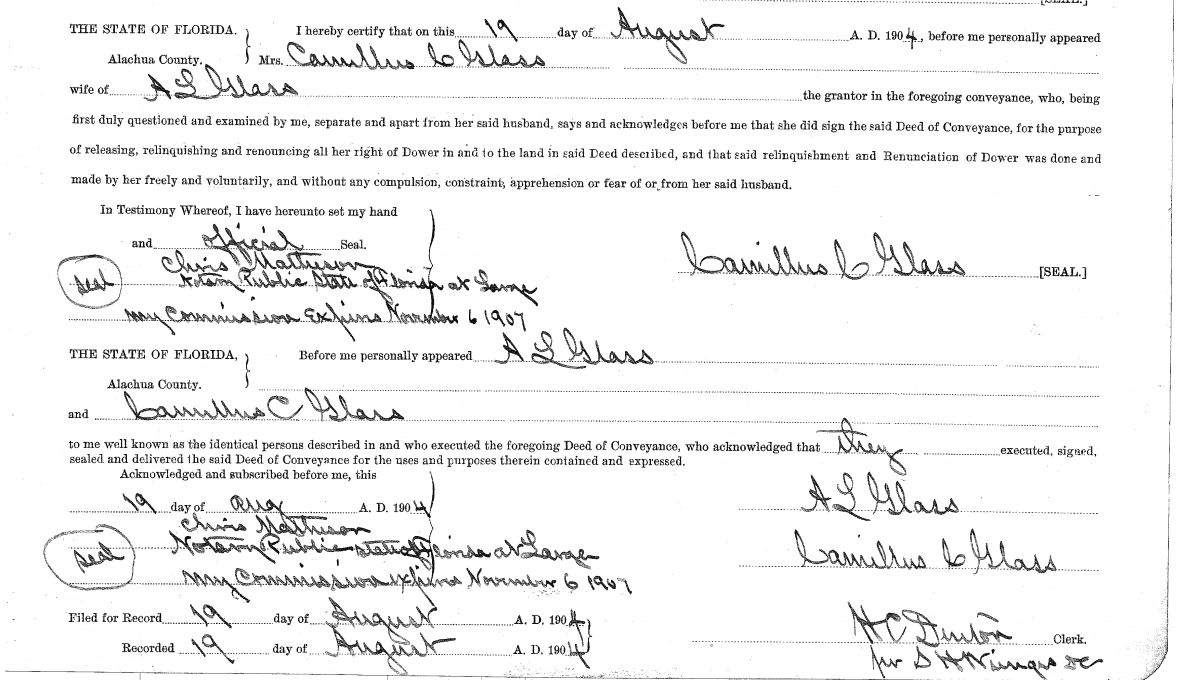 [SEAL.]
THE STATE OF FLORIDA. } I hereby certify that on this 19 day of August A. D. 1904, before me personally appeared
Alachua County. Mrs. Camillus C Glass
wife of A L Glass the grantor in the foregoing conveyance, who, being
first duly questioned and examined by me, separate and apart from her said husband, says and acknowledges before me that she did sign the said Deed of Conveyance, for the purpose
of releasing, relinquishing and renouncing all her right of Dower in and to the land in said Deed described, and that said relinquishment and Renunciation of Dower was done and
made by her freely and voluntarily, and without any compulsion, constraint, apprehension or fear of or from her said husband.
In Testimony Whereof, I have hereunto set my hand
and official Seal.
Camillus C Glass [SEAL.]
Chris Matheson
seal Notary Public State of Florida at Large
My Commission Expires November 6 1907
THE STATE OF FLORIDA, } Before me personally appeared A L Glass
Alachua County.
and Camillus C Glass
to me well known as the identical persons described in and who executed the foregoing Deed of Conveyance, who acknowledged that they executed, signed,
sealed and delivered the said Deed of Conveyance for the uses and purposes therein contained and expressed.
Acknowledged and subscribed before me, this
19 day of Aug A. D. 1904
A L Glass
Chris Matheson
seal Notary Public State of Florida at Large
Camillus C Glass
My Commission expires November 6 1907
Filed for Record 19 day of August A. D. 1904
H C Denton Clerk.
Recorded 19 day of August A. D. 1904
per S H Wienges DC